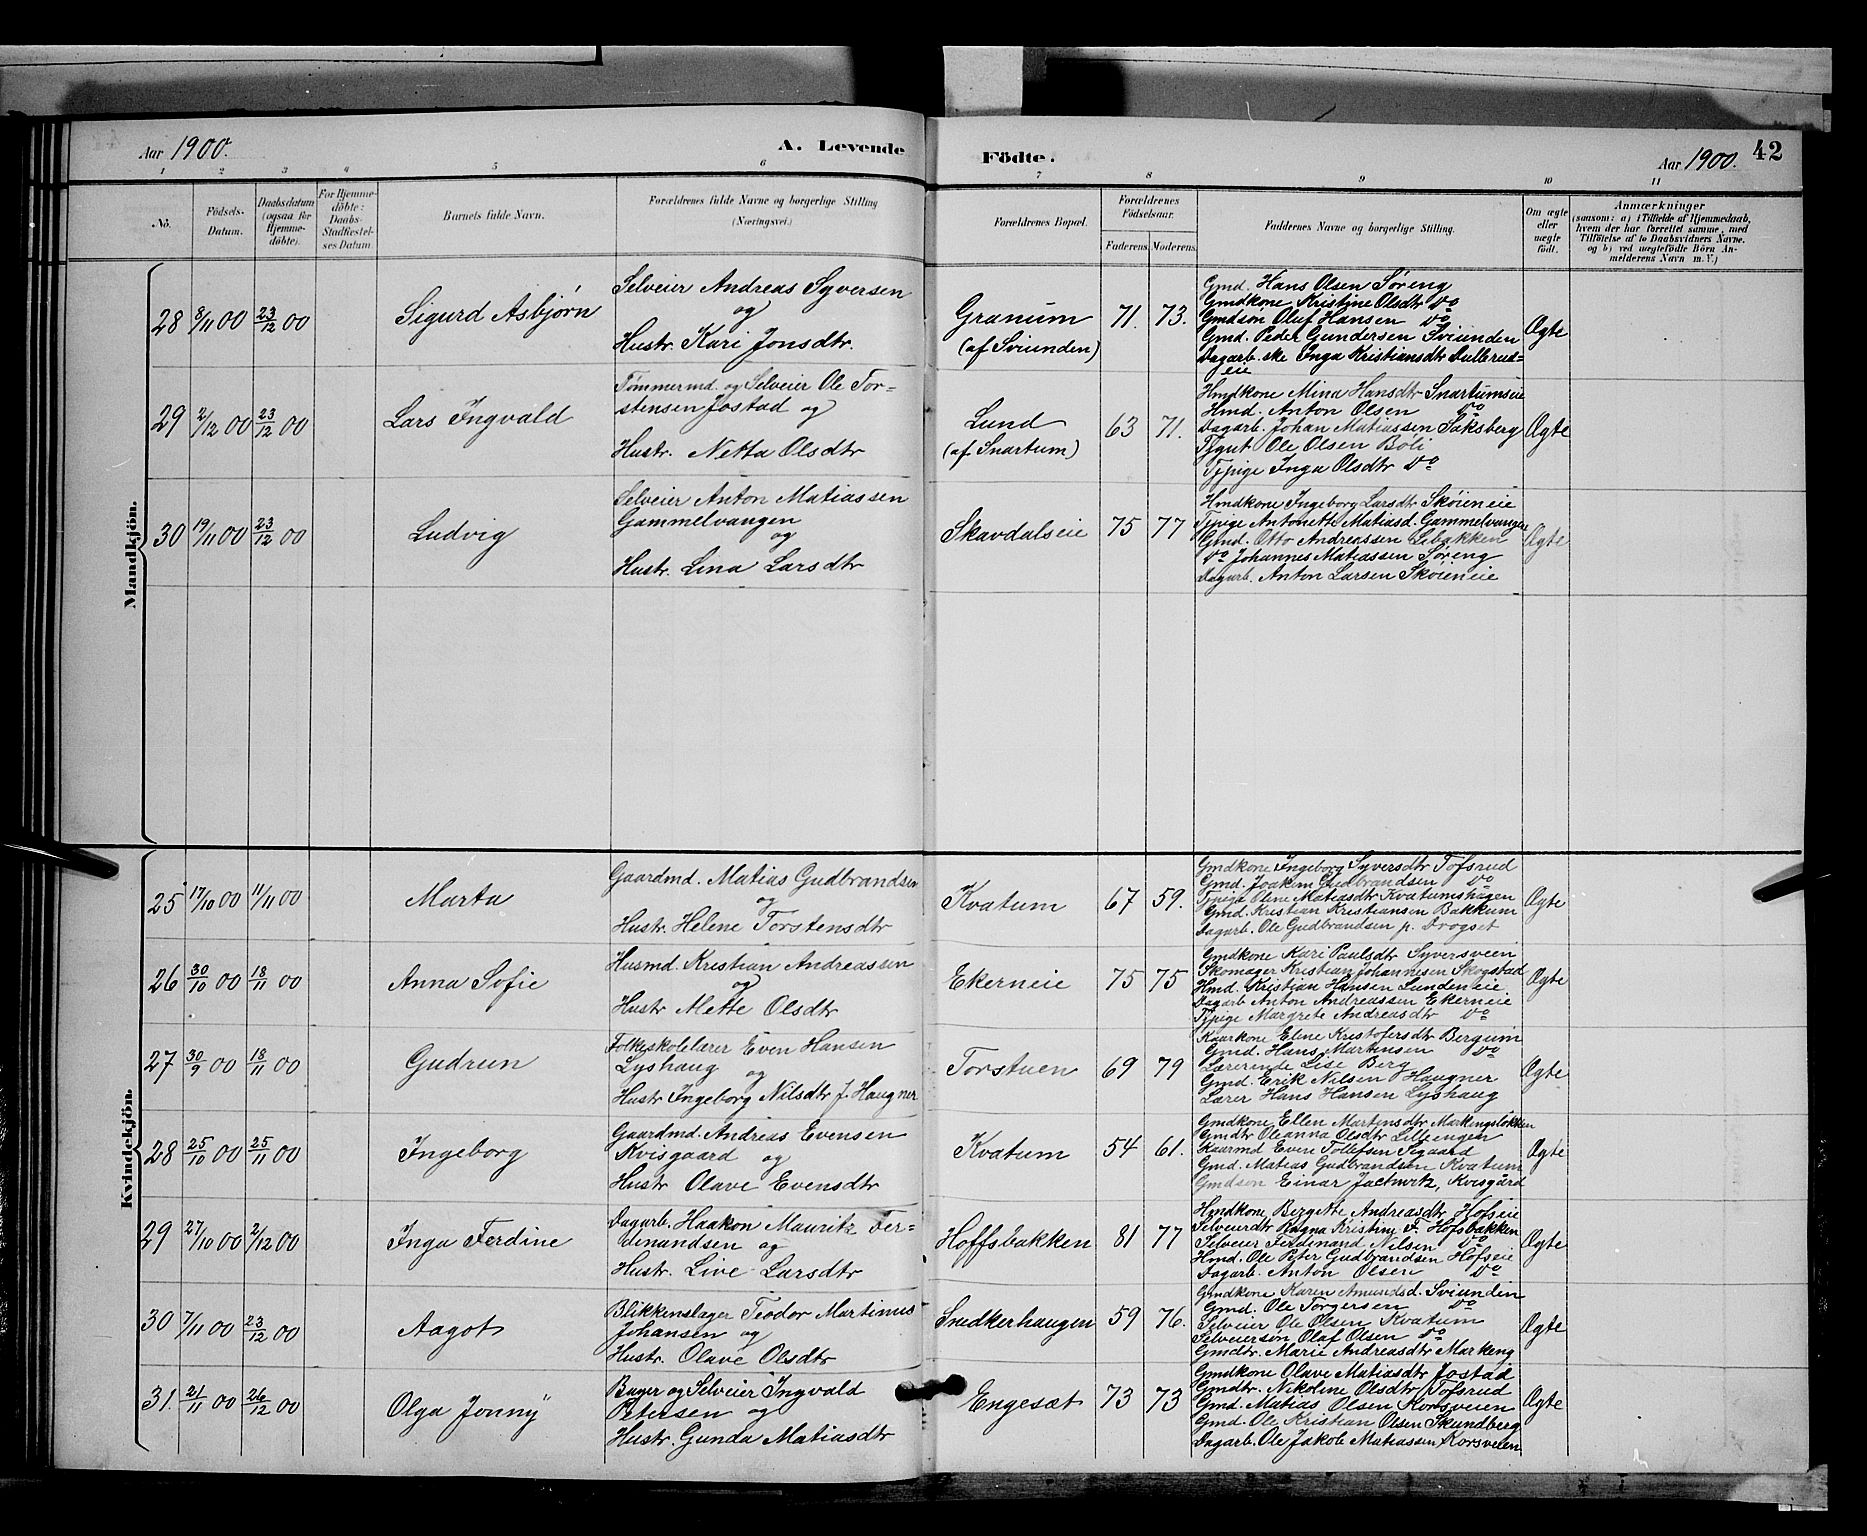 Aar 1900.
A. Levende Födte.
Aar 1900.
42
1 2 3 4 5 6 7 8 9 10 11
No.
Födsels-
Datum.
Daabsdatum
(ogsaa for
Hjemme-
döbte).
For Hjemme-
döbte:
Daabs-
Stadfæstel-
ses Datum.
Barnets fulde Navn.
Forældrenes fulde Navne og borgerlige Stilling
(Næringsvei.)
Forældrenes Bopæl.
Forældrenes
Födselsaar.
Faderens. Moderens.
Faddernes Navne og borgerlige Stilling.
Om ægte
eller
uægte
födt.
Anmærkninger
(saasom: a) i Tilfælde af Hjemmedaab,
hvem der har forrettet samme, med
Tilföielse af to Daabsvidners Navne.
og b) ved uægtefödte Börn An-
melderens Navn m. V.)
Mandkjön.
28 8/11 00 23/12 00
Sigurd Asbjørn
Selveier Andreas Syversen
og
Hustr. Kari Jonsdtr.
Granum
(af Sviunden)
71. 73.
Gmd. Hans Olsen Søreng
Gmdkone Kristine Olsdtr Do
Gmdsøn Oluf Hansen Do
Gmd. Peder Gundersen Sviunden
Dagarb.ske Inga Kristiansdtr Dullerud=
eie
Ægte
29 2/12 00 23/12 00
Lars Ingvald
Tømmermd. og Selveier Ole Tor=
stensen Jostad og
Hustr. Netta Olsdtr
Lund
(af Snartum)
63 71.
Hmdkone Mina Hansdtr Snartumseie
Hmd. Anton Olsen Do
Dagarb. Johan Matiassen Saksberg
Tjgut Ole Olsen Bøli
Tjpige Inga Olsdtr Do
Ægte
30 19/11 00 23/12 00
Ludvig
Selveier Anton Matiassen
Gammelvangen
og
Hustr. Lina Larsdtr
Skavdalseie
75 77
Hmdkone Ingeborg Larsdtr Skøieneie
Tjpige Antonette Matiasd. Gammelvangen
Gmd. Otto Andreassen Libakken
Do Johannes Matiassen Søreng
Dagarb. Anton Larsen Skøieneie
Ægte
Kvindekjön.
25 17/10 00 11/11 00
Marta
Gaardmd. Matias Gudbrandsen
og
Hustr. Helene Torstensdtr
Kvatum
67 59.
Gmdkone Ingeborg Syversdtr Tofsrud
Gmd. Joakim Gudbrandsen Do
Tjpige Oline Matiasdtr Kvatumshagen
Gmd. Kristian Kristiansen Bakkum
Dagarb. Ole Gudbrandsen p. Drogset
Ægte
26 30/10 00 18/11 00
Anna Sofie
Husmd. Kristian Andreassen
og
Hustr Mette Olsdtr
Ekerneie
75 75
Gmdkone Kari Paulsdtr Syversveen
Skomager Kristian Johannesen Skogstad
Hmd. Kristian Hansen Lundeneie
Dagarb Anton Andreassen Ekerneie
Tjpige Margrete Andreasdtr Do
Ægte
27 30/9 00 18/11 00
Gudrun
Folkeskolelærer Even Hansen
Lyshaug og
Hustr Ingeborg Nilsdtr f. Haugner
Torstuen
69 79
Kaarkone Eline Kristofersdtr Bergum
Gmd. Hans Martinsen Do
Lærerinde Lise Berg
Gmd. Erik Nilsen Haugner
Lærer Hans Hansen Lyshaug
Ægte
28 25/10 00 25/11 00
Ingeborg
Gaardmd. Andreas Evensen
Kvisgaard og
Hustr Olave Evensdtr
Kvatum
54 61.
Gmdkone Ellen Martinsdtr Markengsløkken
Gmdtr Oleanna Olsdtr Lilleengen
Kaarmd Even Tollefsen Sigaard
Gmd. Matias Gudbrandsen Kvatum
Gmdsøn Einar Kvisgård
Ægte
29 27/10 00 2/12 00
Inga Ferdine
Dagarb. Haakon Mauritz Fer=
dinandsen og
Hustr. Live Larsdtr
Hoffsbakken
81 77
Hmdkone Bergette Andreasdtr Hofseie
Selveierdtr Ragna Kristine F. Hofsbakken
Selveier Ferdinand Nilsen Do
Hmd. Ole Peter Gudbrandsen Hofseie
Dagarb. Anton Olsen Do
Ægte
30 7/11 00 23/12 00
Aagot
Blikkenslager Teodor Martinus
Johansen og
Hustr. Olave Olsdtr
Snedkerhaugen
59 76.
Gmdkone Karen Amundsd. Sviunden
Gmd. Ole Torgersen Do
Selveier Ole Olsen Kvatum
Selveiersøn Olaf Olsen Do
Gmdtr. Marie Andreasdtr Markeng
Ægte
31. 21/11 00 26/12 00
Olga Jonny
Bager og Selveier Ingvald
Petersen og
Hustr. Gunda Matiasdtr
Engesæt
73 73
Gmdkone Olave Matiasdtr Jostad
Gmdtr. Nikoline Olsdtr Tofsrud
Gmd. Matias Olsen Korsveien
Gmd. Ole Kristian Olsen Skundberg
Dagarb. Ole Jakob Matiassen Korsveien
Ægte